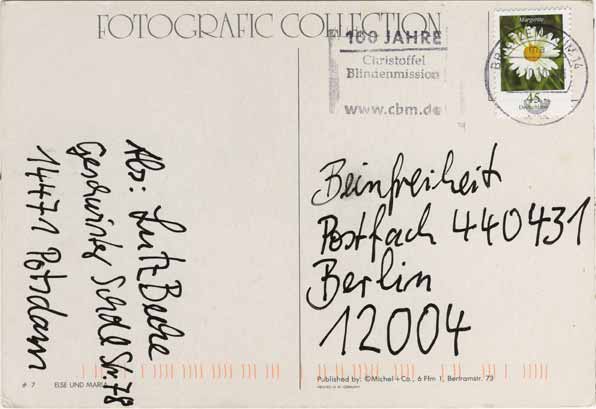 FOTOGRAFIC COLLECTION
100 JAHRE
Christoffel
Blindenmission
www.cbm.de
Margerite
45
Deutschland
Abs: Lutz
Geschwister Scholl Str. 78
14471 Potsdam
Beinfreiheit
Postfach 440431
Berlin
12004
# 7 ELSE UND MARIA
Published by: ©Michel+Co., 6 Ffm 1, Bertramstr. 73
PRINTED IN W. GERMANY